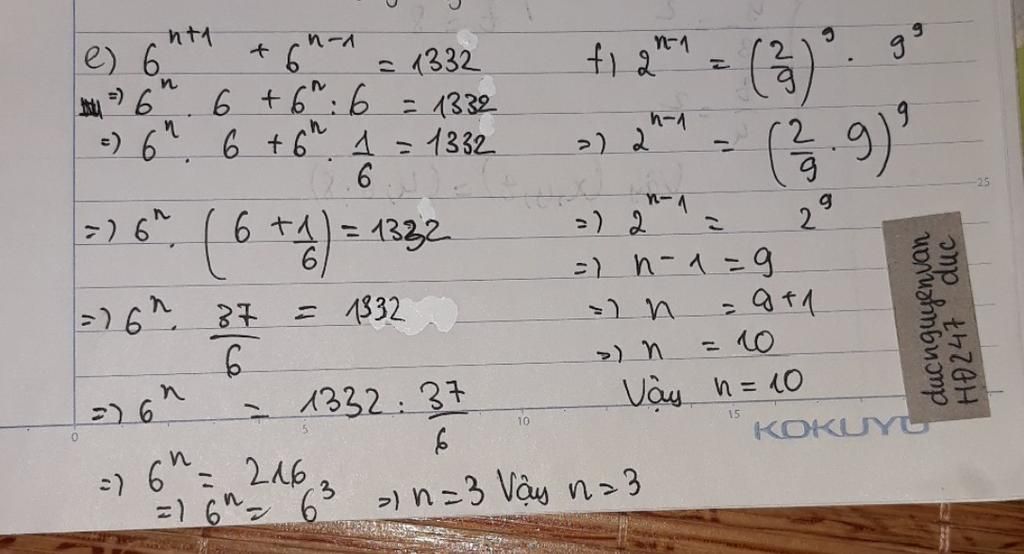 e) 6^{n+1} + 6^{n-1} = 1332
=) 6^n . 6 + 6^n : 6 = 1332
=) 6^n . 6 + 6^n . 1/6 = 1332
=) 6^n . (6 + 1/6) = 1332
=) 6^n . 37/6 = 1332
=) 6^n = 1332 : 37/6
=) 6^n = 216
=) 6^n = 6^3 =) n = 3 Vậy n = 3
f) 2^{n-1} = (2/9)^9 . 9^9
=) 2^{n-1} = (2/9 . 9)^9
=) 2^{n-1} = 2^9
=) n - 1 = 9
=) n = 9 + 1
=) n = 10
Vậy n = 10
0 5 10 15 25
KOKUYO
ducnguyenvan
HĐ247 duc